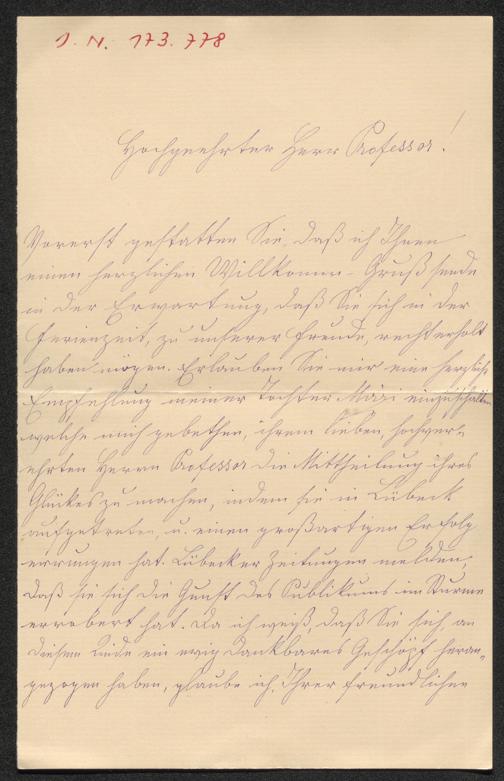 J. N. 173.778
Hochgeehrter Herr Professor!
Vorerst gestatten Sie, daß ich Ihnen
einen herzlichen Willkomm-Gruß sende
in der Erwartung, daß Sie sich in der
Ferienzeit, zu unserer Freude, recht erholt
haben mögen. Erlauben Sie mir eine herzliche
Empfehlung meiner Tochter Mizi einzuschalten
welche mich gebethen, ihrem lieben, hochver-
ehrten Herrn Professor die Mittheilung ihres
Glückes zu machen, indem sie in Lübeck
aufgetreten, u. einen großartigen Erfolg
errungen hat. Lübecker Zeitungen melden,
daß sie sich die Gunst des Publikums im Sturme
errobert hat. Da ich weiß, daß Sie sich, an
diesem Kinde ein ewig dankbares Geschöpf heran-
gezogen haben, glaube ich, Ihrer freundlichen